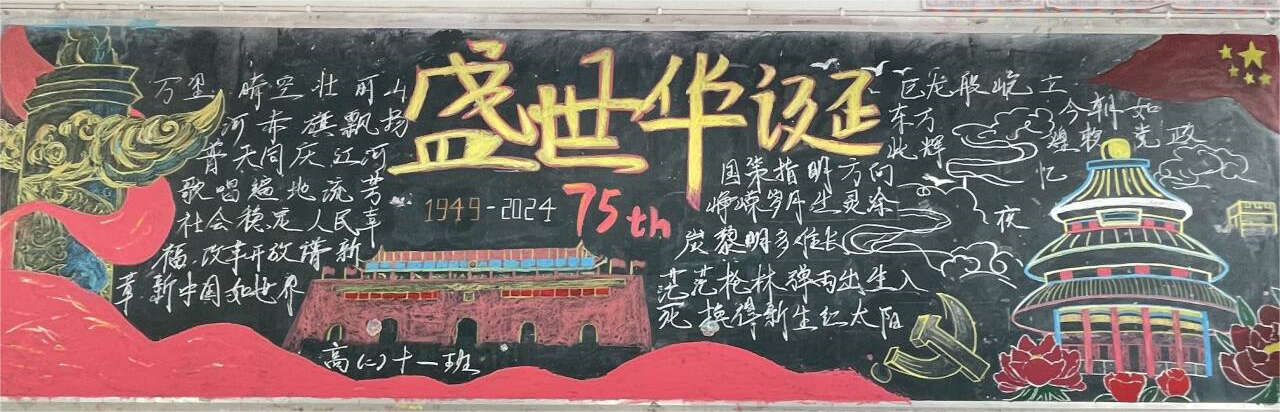 盛世华诞
75th
1949-2024
万里晴空壮丽山
河赤旗飘扬
普天同庆江河
歌唱遍地流芳
社会稳定人民幸
福.改革开放谱新
章新中国如世界
巨龙般屹立
东方
国策指明方向
峥嵘岁月生灵涂
炭黎明多难长
茫茫枪林弹雨出生入
死换得新生红太阳
今朝如
此辉煌
党政
忆
夜
高(二)十一班